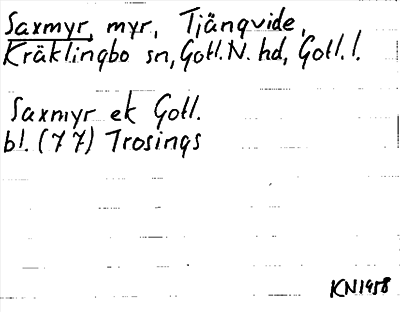 Saxmyr, myr, Tjängvide,
Kräklingbo sn, Gotl. N. hd, Gotl. l.
Saxmyr ek Gotl.
bl. (77) Trosings
KN1958